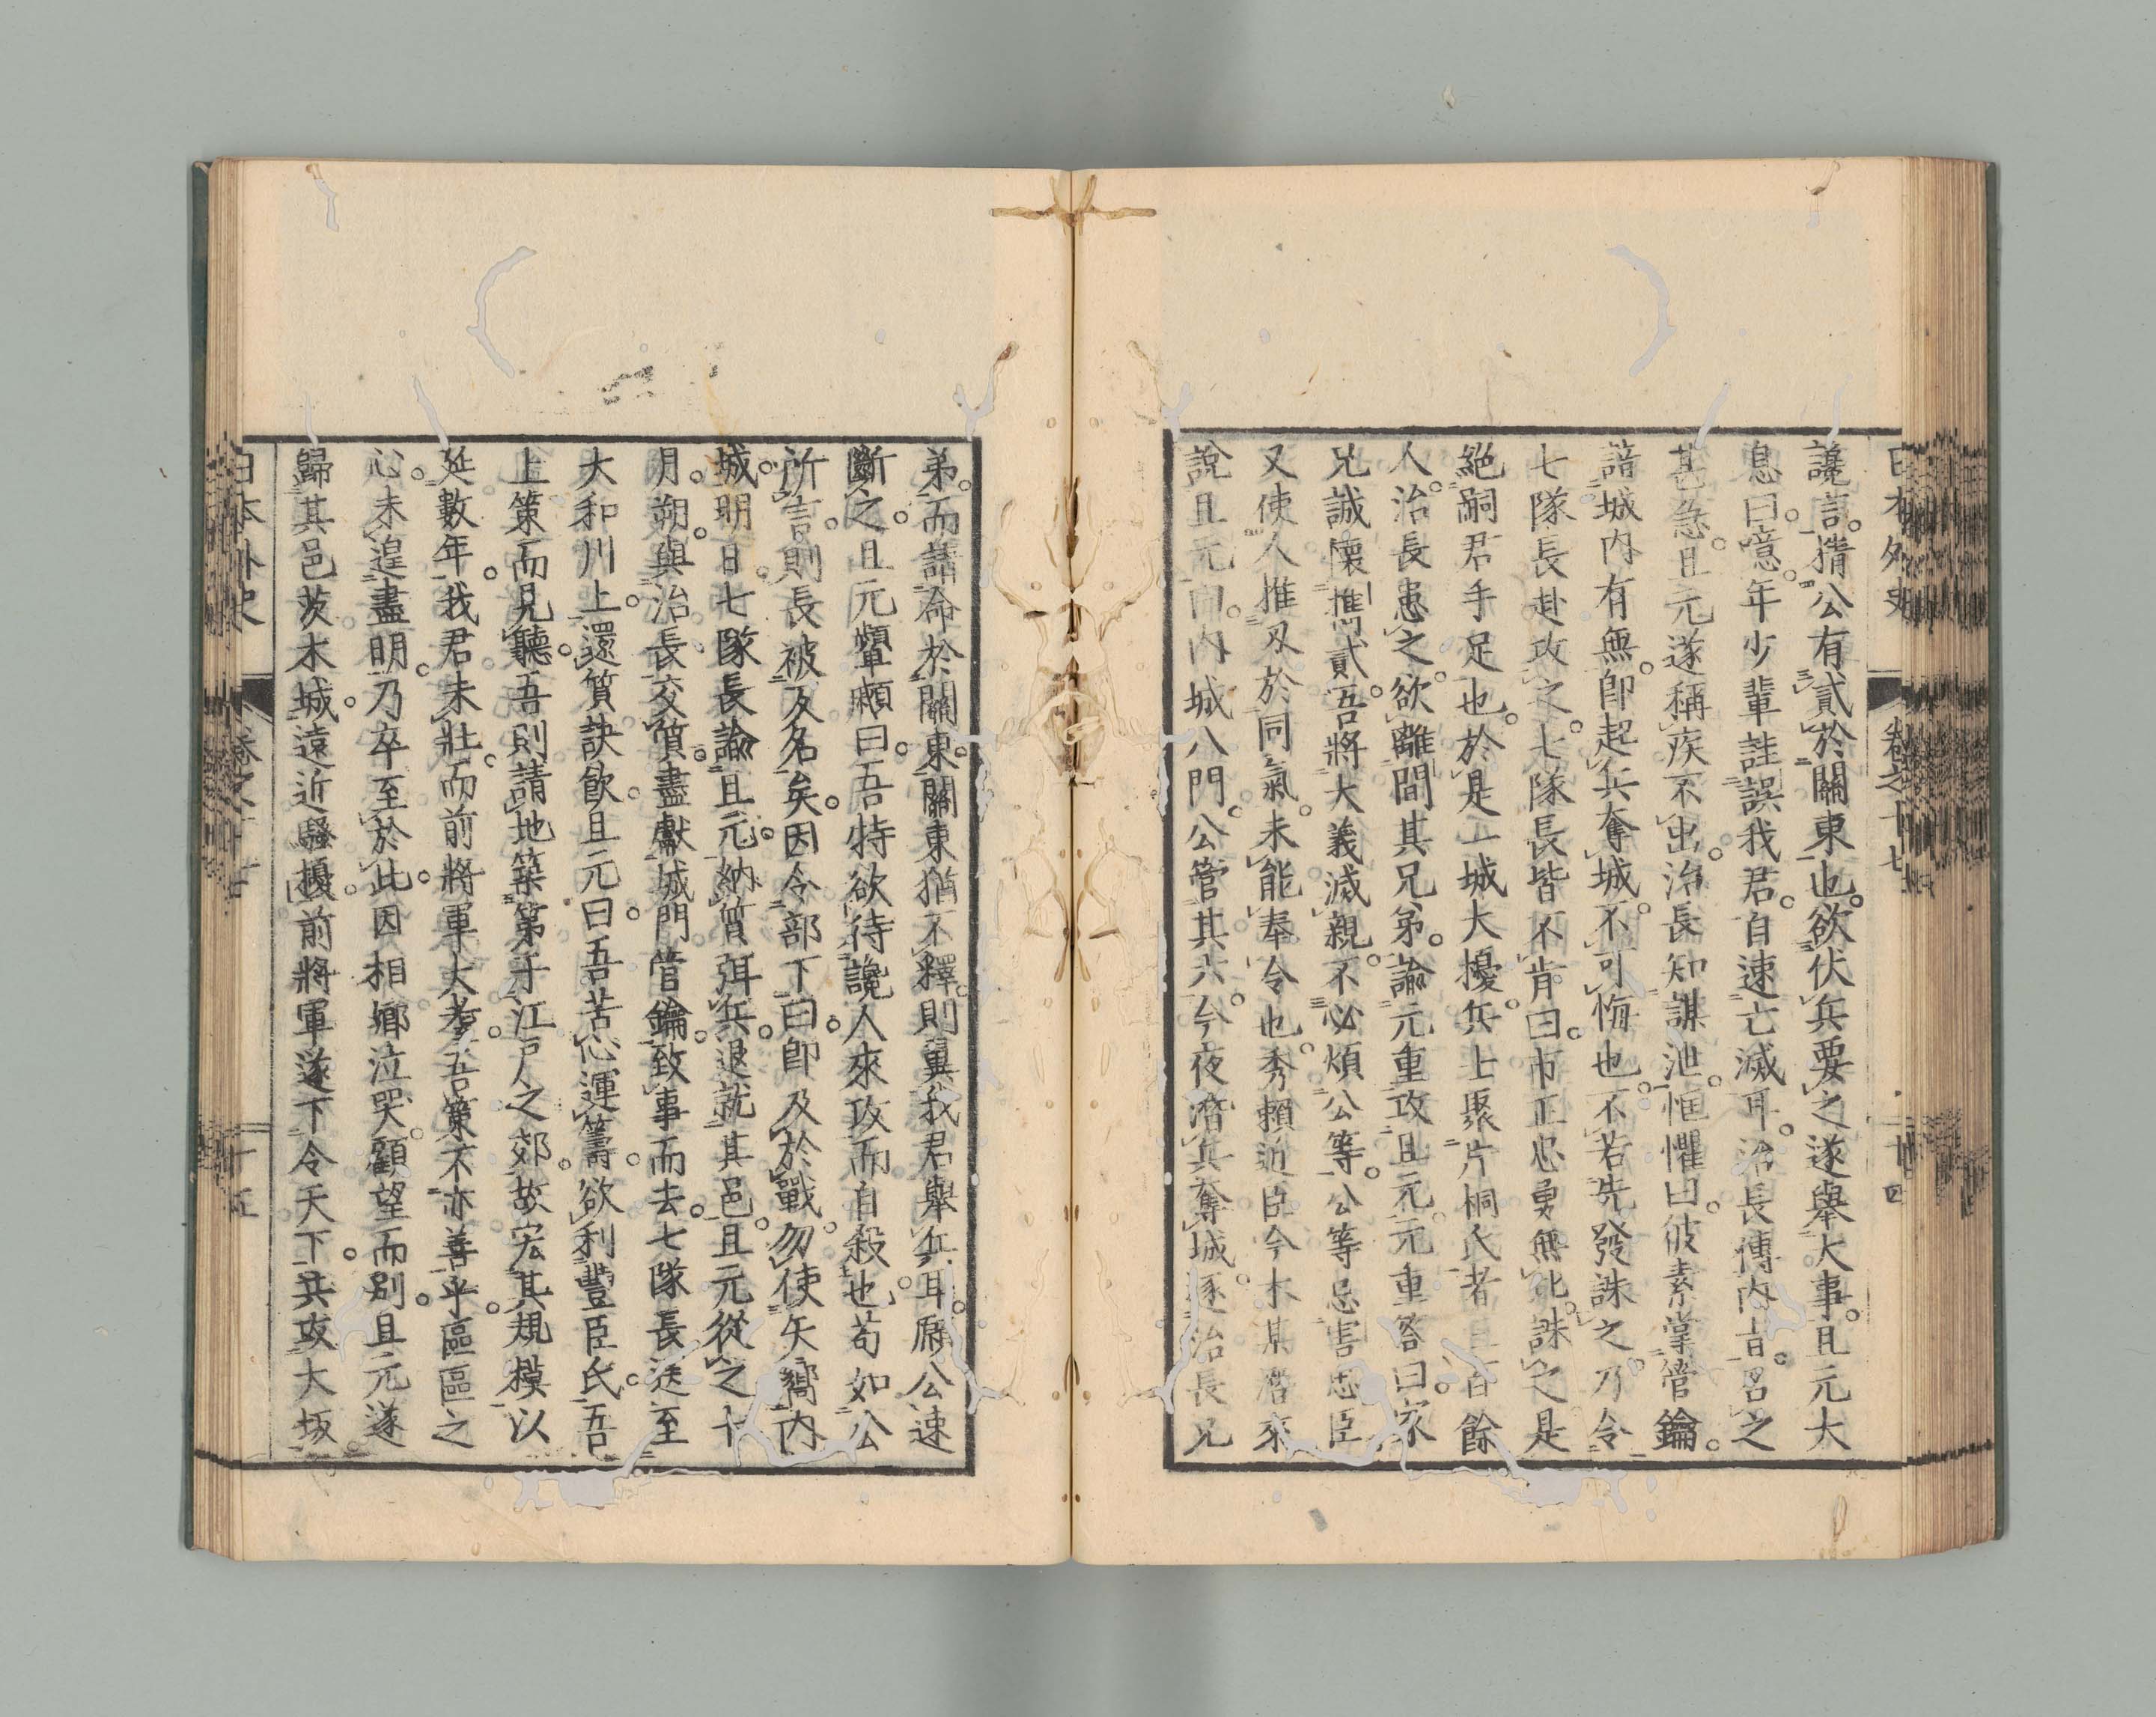 日本外史 卷之十七 二十四
讒言。猜公有貳於關東也。欲伏兵要之遂舉大事。且元大
息曰。噫。年少輩詿誤我君。自速亡滅耳。治長傳內旨。召之
甚急。且元遂稱疾不出。治長知謀泄。恇懼曰。彼素掌管鑰。
諳城內有無。卽起兵奪城。不可悔也。不若先發誅之。乃令
七隊長赴攻之。七隊長皆不肯曰。市正忠勇無比。誅之是
絕嗣君手足也。於是一城大擾。兵士聚片桐氏者三百餘
人。治長患之。欲離間其兄弟。諭元重攻且元。元重答曰。家
兄誠懷攜貳。吾將大義滅親。不必煩公等。公等忌害忠臣
又使人推刃於同氣。未能奉令也。秀賴近臣今木某潛來
說且元曰。內城八門。公管其六。今夜潛兵奪城。逐治長兄
弟。而請命於關東。關東猶不釋。則翼我君舉兵耳。願公速
斷之。且元顰顣曰。吾特欲待讒人來攻而自殺也。苟如公
所言。則長被反名矣。因令部下曰。卽及於戰。勿使矢嚮內
城。明日七隊長諭且元。納質弭兵。退就其邑。且元從之。十
月朔。與治長交質。盡獻城門管鑰。致事而去。七隊長送至
大和川上。還質訣飮。且元曰。吾苦心運籌。欲利豐臣氏。吾
上策而見聽。吾則請地築第于江戶之郊。故宏其規模以
延數年。我君未壯。而前將軍大耋。吾策不亦善乎。區區之
心。未遑盡明。乃卒至於此。因相嚮泣哭。顧望而別。且元遂
歸其邑茨木城。遠近騷擾。前將軍遂下令天下。共攻大坂。
日本外史